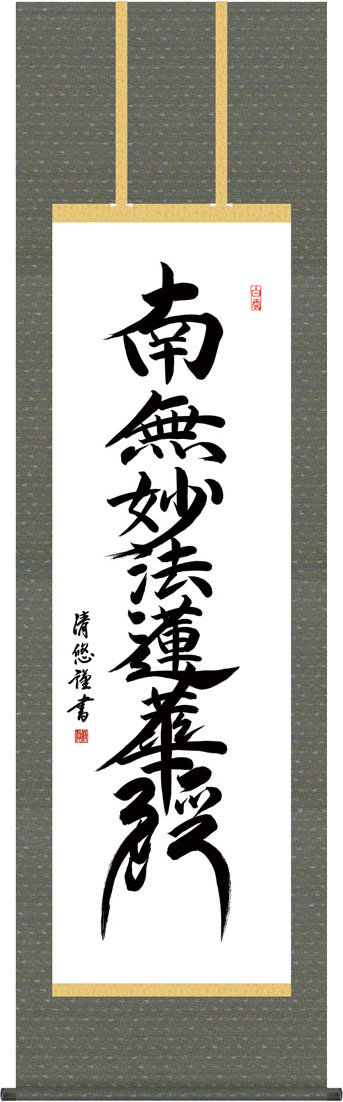 南無妙法蓮華経
清悠謹書